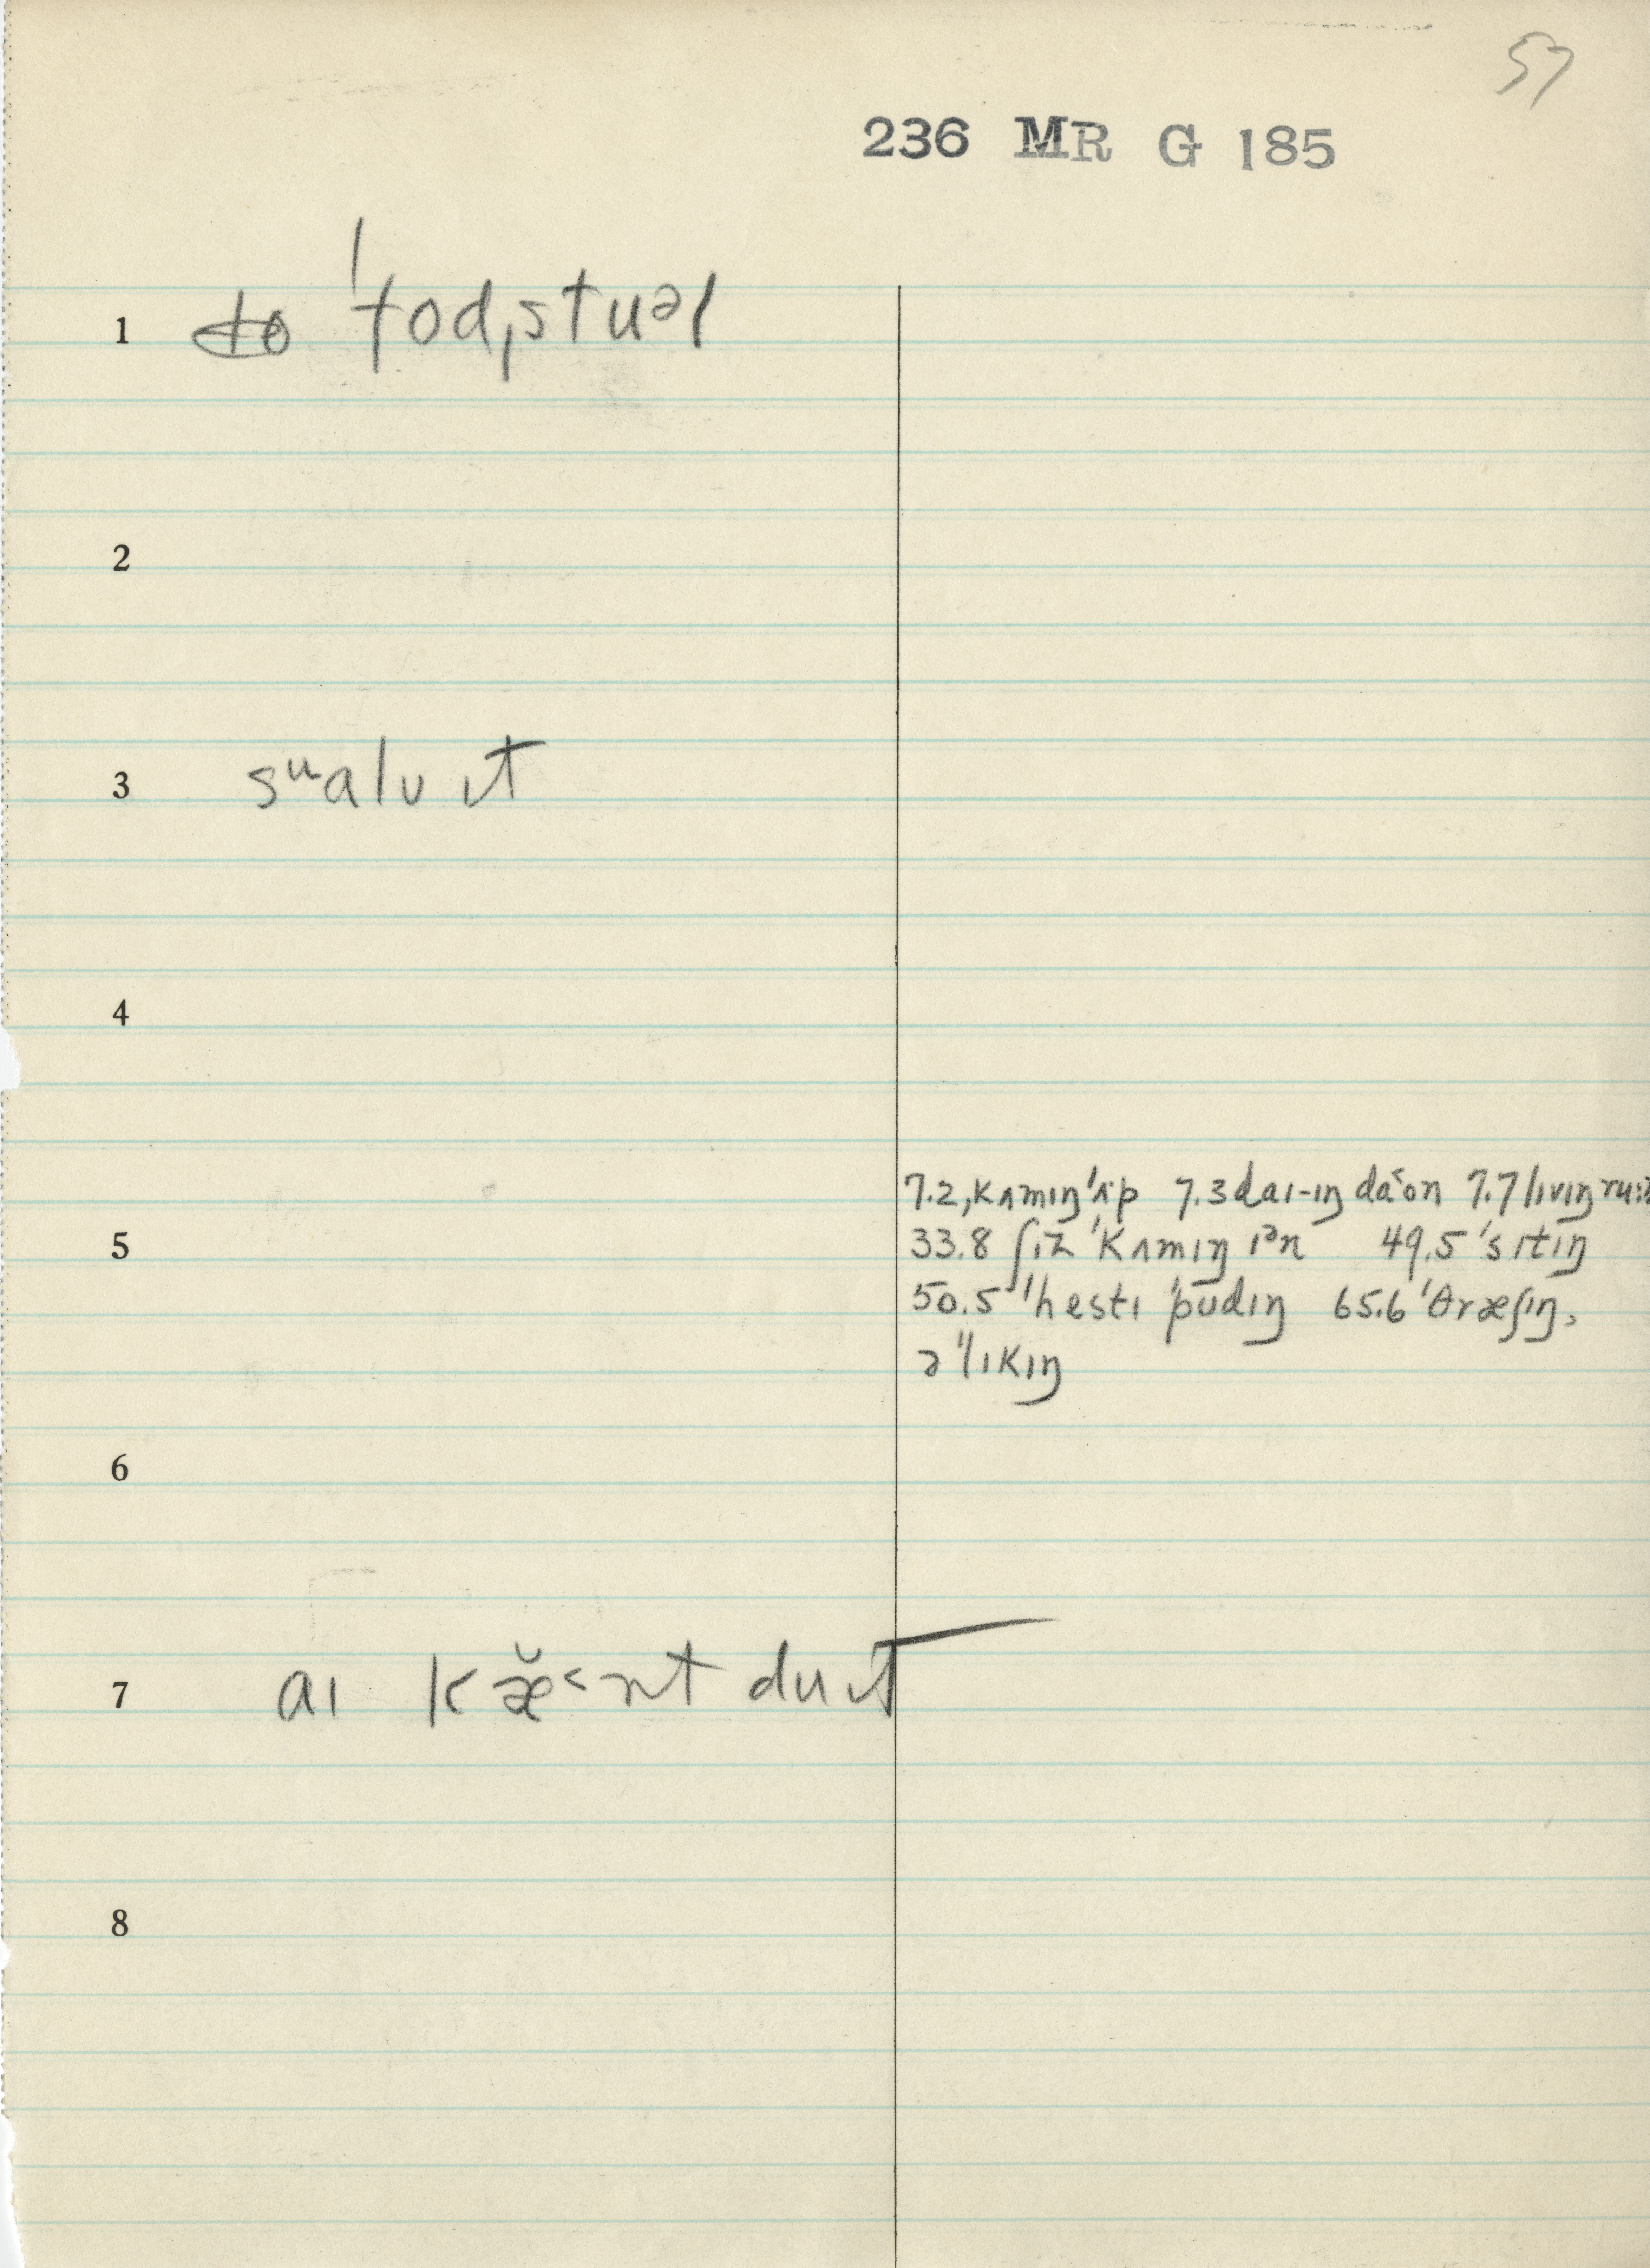 57
236 MR G 185
1 to ˈtodˌstuəl
2
3 sᵘalʋ ɪt
4
7.2 ˌkʌmɪŋ ˈʌp 7.3 daɪ-ɪŋ da˂ʊn 7.7 lɪvɪŋ ru:
5 33.8 ʃiz ˈkʌmɪŋ ɪᵊn 49.5 ˈsɪtɪŋ
50.5 ˈˈhestɪ ˈpʊdɪŋ 65.6 ˈθræʃɪŋ,
ə ˈˈlɪkɪŋ
6
7 aɪ kæ̆˂nt du ɪt
8